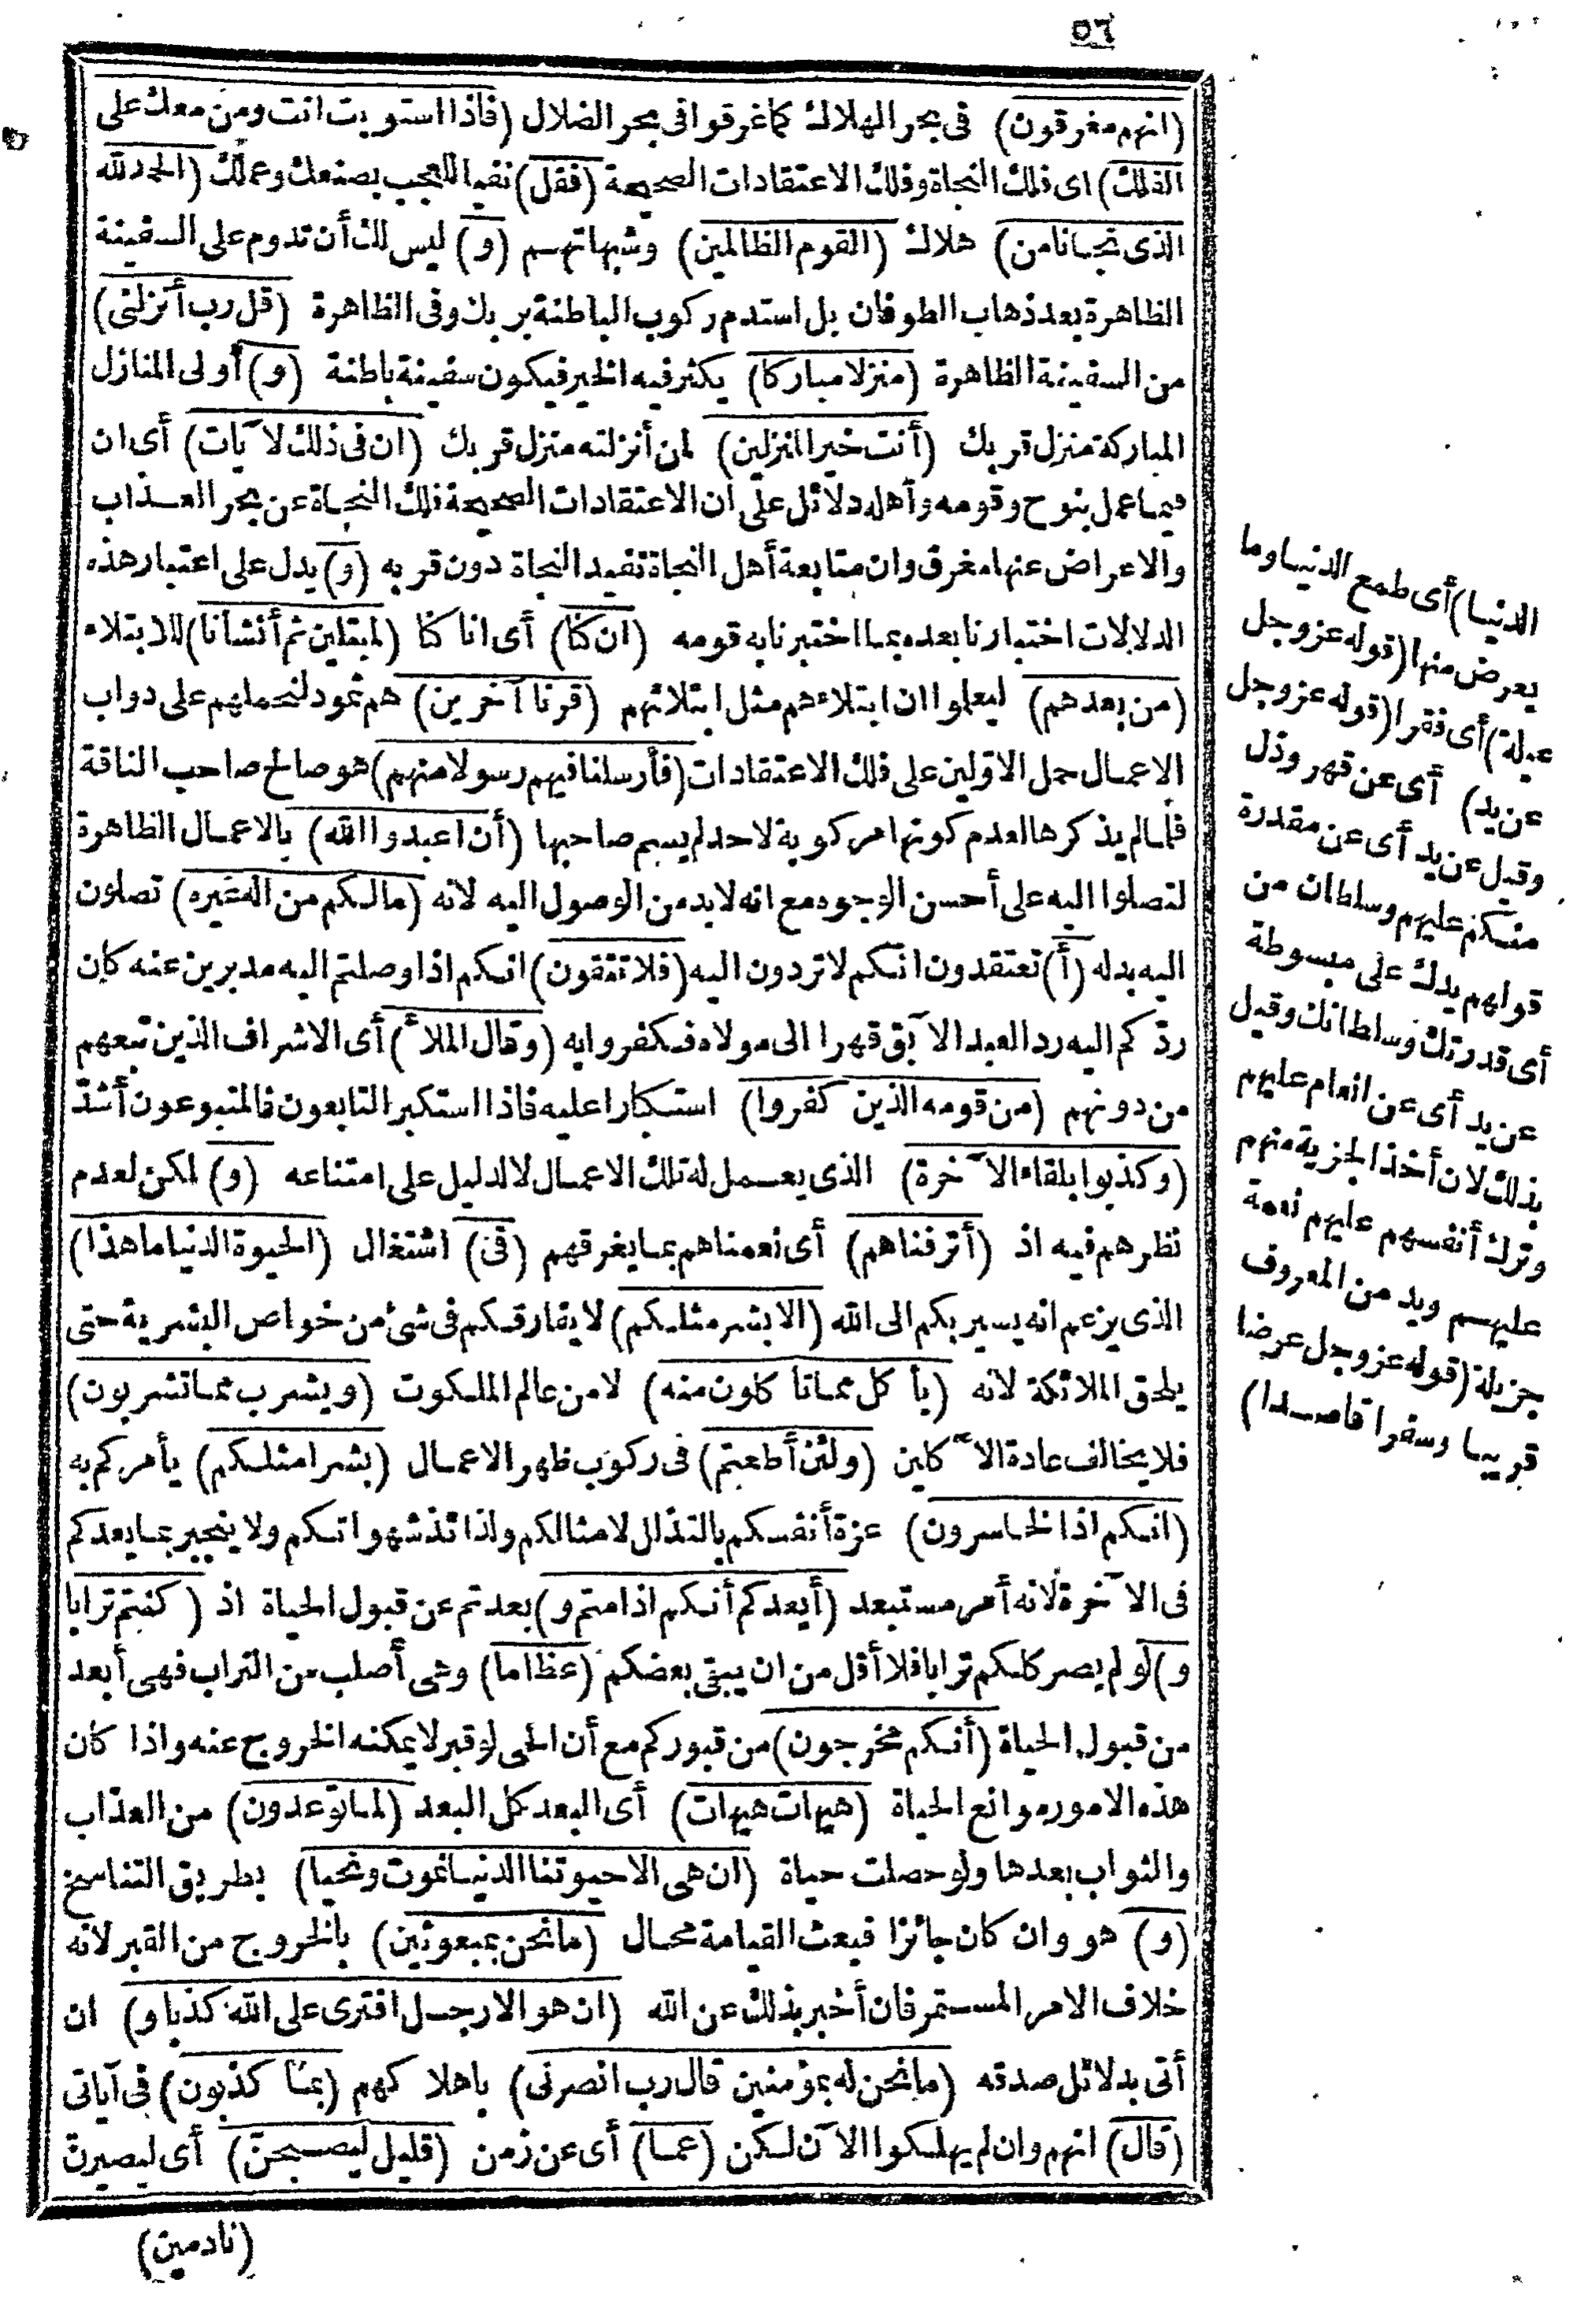 ٥٦
(انهم مغرقون) فى بحر الهلاك كما غرقوا فى بحر الضلال (فاذا استويت انت ومن معك على
الفلك) اى فلك النجاة وفلك الاعتقادات الصحيحة (فقل) نفيا للعجب بصنعك وعملك (الحمد لله
الذى نجانا من) هلاك (القوم الظالمين) وشبهاتهم (و) ليس لك أن تدوم على السفينة
الظاهرة بعد ذهاب الطوفان بل استدم ركوب الباطنة بربك وفى الظاهرة (قل رب أنزلنى)
من السفينة الظاهرة (منزلا مباركا) يكثر فيه الخير فيكون سفينة باطنة (و) أولى المنازل
المباركة منزل قربك (أنت خير المنزلين) لمن أنزلته منزل قربك (ان فى ذلك لآيات) أى ان
فيما عمل بنوح وقومه وأهله دلائل على ان الاعتقادات الصحيحة فلك النجاة عن بحر العذاب
والاعراض عنها مغرق وان متابعة أهل النجاة تفيد النجاة دون قربه (و) يدل على اعتبار هذه
الدلالات اختبارنا بعده بما اختبرنا به قومه (ان كنا) أى انا كنا (لمبتلين ثم أنشأنا) للابتلاء
(من بعدهم) ليعلموا ان ابتلاءهم مثل ابتلائهم (قرنا آخرين) هم ثمود لنحملهم على دواب
الاعمال حمل الاولين على فلك الاعتقادات (فأرسلنا فيهم رسولا منهم) هو صالح صاحب الناقة
فلما لم يذكرها لعدم كونها مركوبة لاحد لم يسم صاحبها (أن اعبدوا الله) بالاعمال الظاهرة
لتصلوا اليه على أحسن الوجوه مع انه لابد من الوصول اليه لانه (مالكم من اله غيره) تصلون
اليه بدله (أ) تعتقدون انكم لا تردون اليه (فلا تتقون) انكم اذا وصلتم اليه مدبرين عنه كان
ردكم اليه رد العبد الآبق قهرا الى مولاه فكفروا به (وقال الملأ) أى الاشراف الذين تبعهم
من دونهم (من قومه الذين كفروا) استكبارا عليه فاذا استكبر التابعون فالمتبوعون أشدّ
(وكذبوا بلقاء الآخرة) الذى يعمل له تلك الاعمال لا لدليل على امتناعه (و) لكن لعدم
نظرهم فيه اذ (أترفناهم) أى نعمناهم بما يغرقهم (فى) اشتغال (الحيوة الدنيا ما هذا)
الذى يزعم انه يسير بكم الى الله (الا بشر مثلكم) لا يفارقكم فى شئ من خواص البشرية حتى
يلحق الملائكة لانه (يأكل مما تأكلون منه) لا من عالم الملكوت (ويشرب مما تشربون)
فلا يخالف عادة الآكلين (ولئن أطعتم) فى ركوب ظهر الاعمال (بشرا مثلكم) يأمركم به
(انكم اذا لخاسرون) عزة أنفسكم بالتذلل لامثالكم ولذائذ شهواتكم ولا ينجبر بما يعدكم
فى الآخرة لانه أمر مستبعد (أيعدكم أنكم اذا متم و) بعدتم عن قبول الحياة اذ (كنتم ترابا
و) لو لم يصر كلكم ترابا فلا أقل من ان يبقى بعضكم (عظاما) وهى أصلب من التراب فهى أبعد
من قبول الحياة (أنكم مخرجون) من قبوركم مع أن الحى لو قبر لا يمكنه الخروج عنه واذا كان
هذه الامور موانع الحياة (هيهات هيهات) أى البعد كل البعد (لما توعدون) من العذاب
والثواب بعدها ولو حصلت حياة (ان هى الا حيوتنا الدنيا نموت ونحيا) بطريق التناسخ
(و) هو وان كان جائزا فبعث القيامة محال (ما نحن بمبعوثين) بالخروج من القبر لانه
خلاف الامر المستمر فان أخبر بذلك عن الله (ان هو الا رجل افترى على الله كذبا و) ان
أتى بدلائل صدقه (ما نحن له بمؤمنين قال رب انصرنى) باهلاكهم (بما كذبون) فى آياتى
(قال) انهم وان لم يهلكوا الآن لكن (عما) أى عن زمن (قليل ليصبحنّ) أى ليصيرنّ
(نادمين)
الدنيا) أى طمع الدنيا وما
يعرض منها (قوله عز وجل
عيلة) أى فقرا (قوله عز وجل
عن يد) أى عن قهر وذل
وقيل عن يد أى عن مقدرة
منكم عليهم وسلطان من
قولهم يدك على مبسوطة
أى قدرتك وسلطانك وقيل
عن يد أى عن انعام عليهم
بذلك لان أخذ الجزية منهم
وترك أنفسهم عليهم نعمة
عليهم ويد من المعروف
جزيلة (قوله عز وجل عرضا
قريبا وسفرا قاصدا)